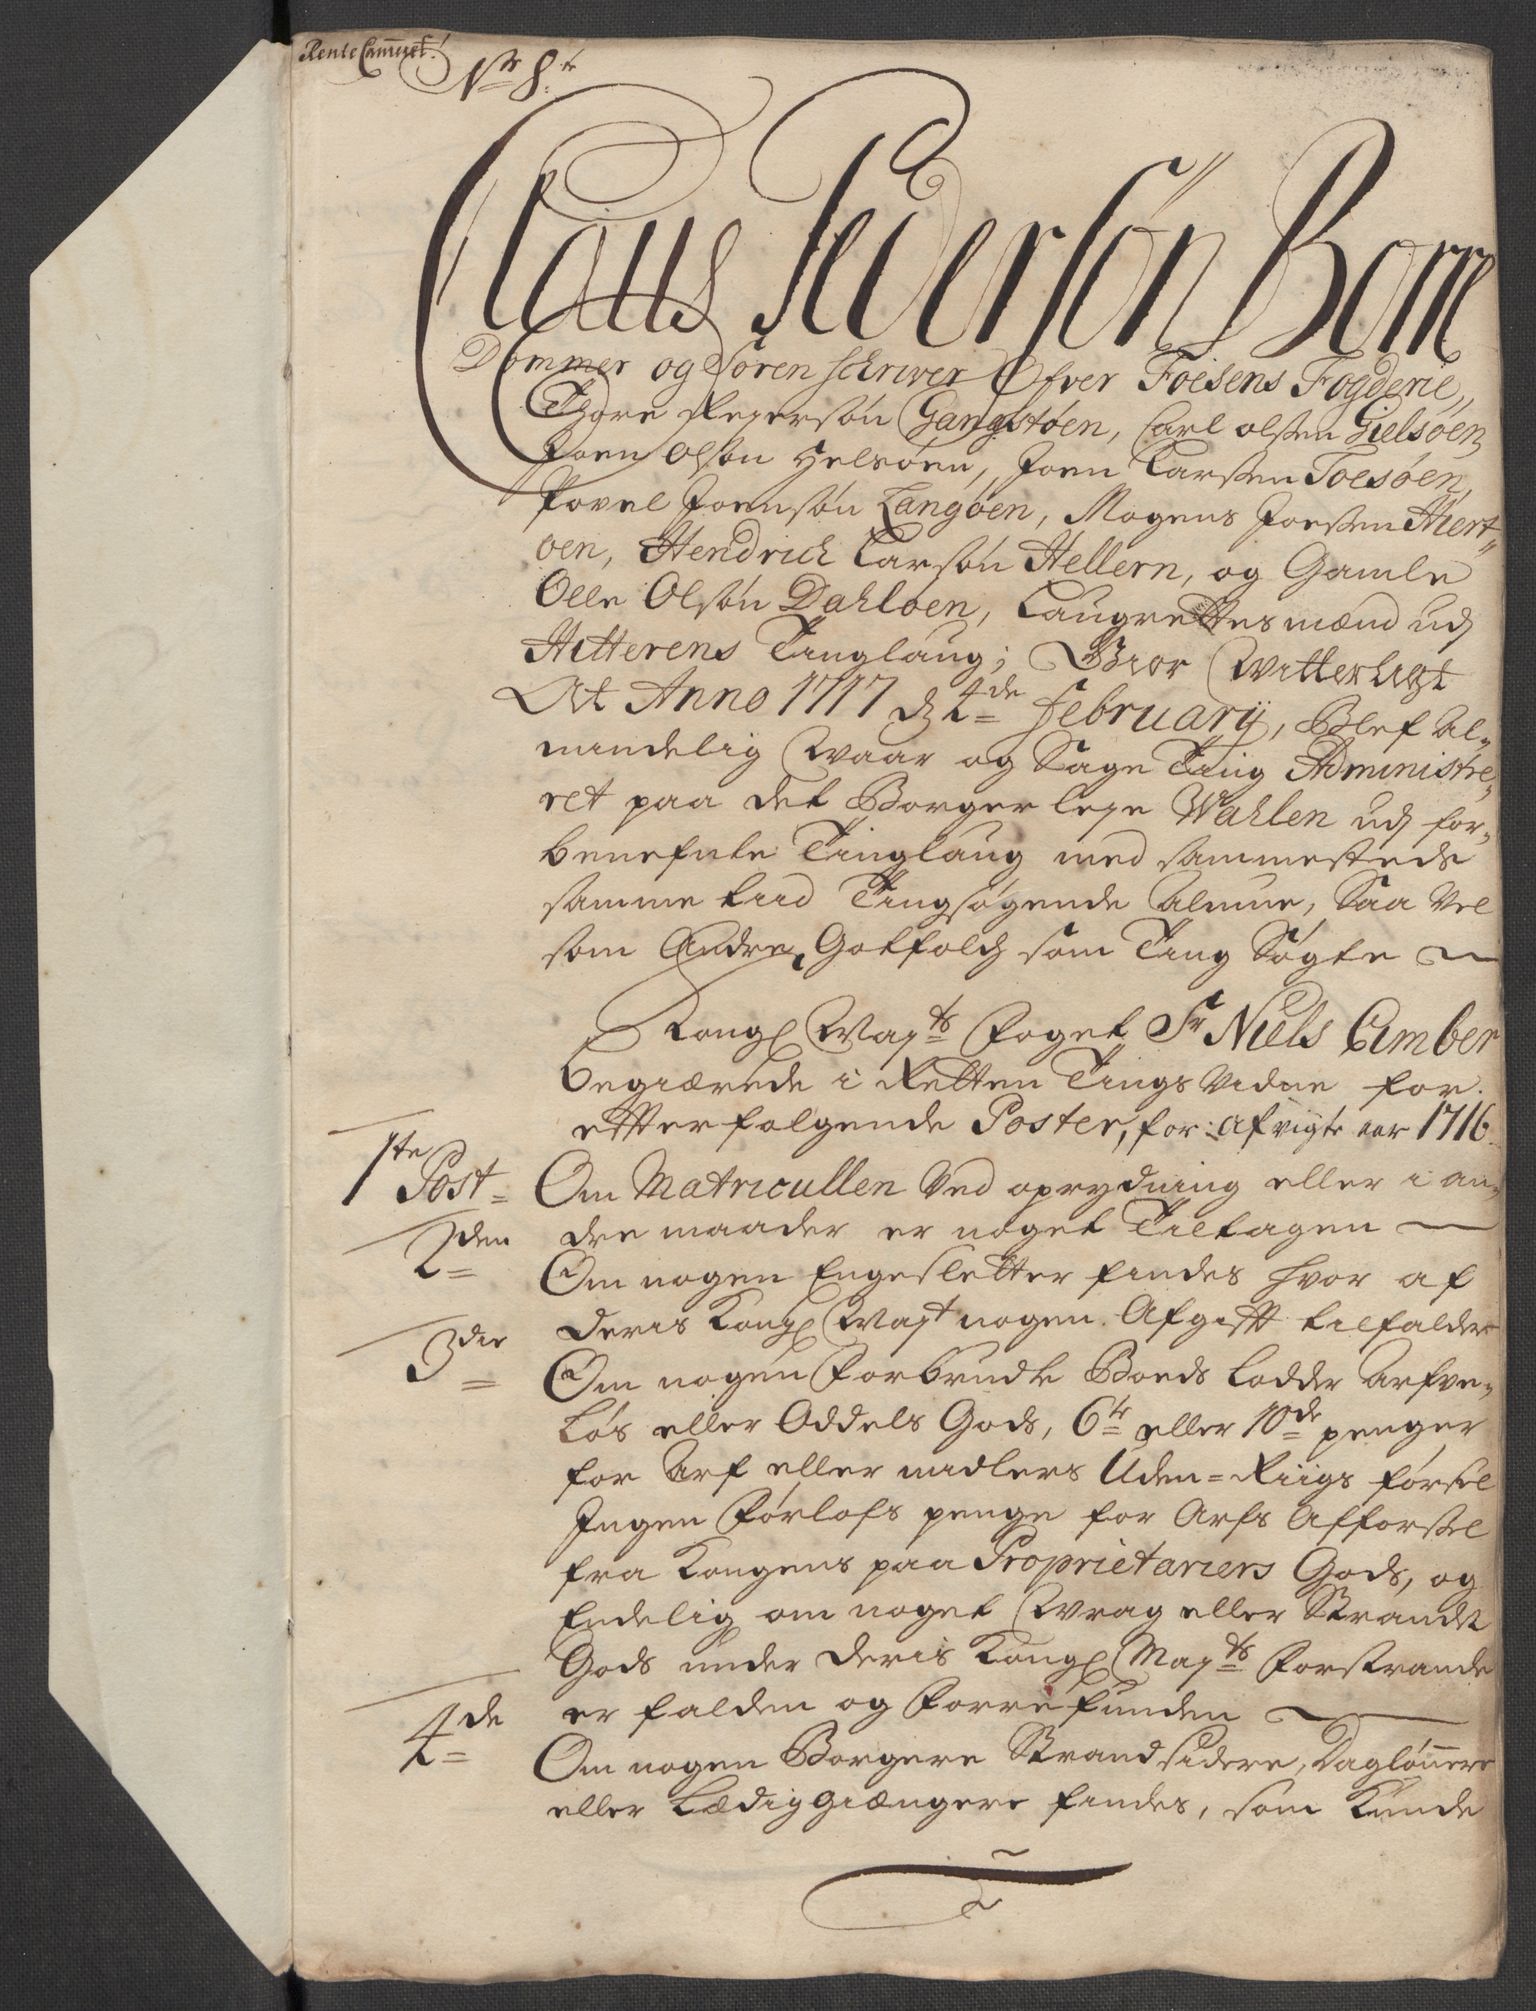 Rente Cammeret!
Nr 8.
Claus Pedersøn Borre
Dommer og Sorenschriver Ofver Foesens Fogderie,
Thore Reyersøn Gangstøen, Carl olssen Gielsøen
Joen Olsøn Helsøen, Joen Larssen Toesøen,
Povel Joensøn Langøen, Mogens Joessen Hiert-
øen, Hendrich Larsøn Hellern, og Gamle
Olle Olsøn Dahløen, Laugrettes mænd udj
Hitterens Tinglaug; Giør Witterligt
At Anno 1717 d 4de Februarij, Blef Al-
mindelig Waar og Sage Ting Administre-
ret paa det Borger leye Wahlen udj for-
benefnte Tinglaug med sammesteds
samme tiid Tingsøgende Almue, Saa Vel
som Andre Gotfolch som Ting Søgte
Kongl Mayts Foget Sr Niels Ember
begiærede i Retten Tings Vidne for
efterfølgende Poster, for: afvigte aar 1716.
1te Post Om Matricullen Ved oprydning eller i an-
dre maader er noget Tiltagen
2den Om nogen Engesletter findes hvor af
Deris Kongl Mayt nogen Afgifft tilfalder
3die Om nogen Forbrudt Boeds Lodder Arfve-
Løs eller Oddels Gods, 6te eller 10de penger
for Arf eller midlers Uden-Riigs førsel
Ingen Førlofs penge for Arfs Afforsel
fra Kongens paa Proprietariers Gods, og
Endelig om noget Wrag eller Strandet
Gods under Deris Kongl Mayts Forstrande
er falden og Forrefunden
4de Om nogen Borgere Strandsidere, Dagløñere
eller Lædiggiængere findes, som Kunde